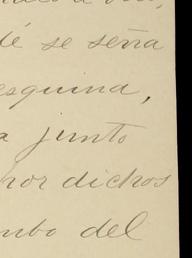 dé se seña
esquina,
a junto
por dichos
mbo del